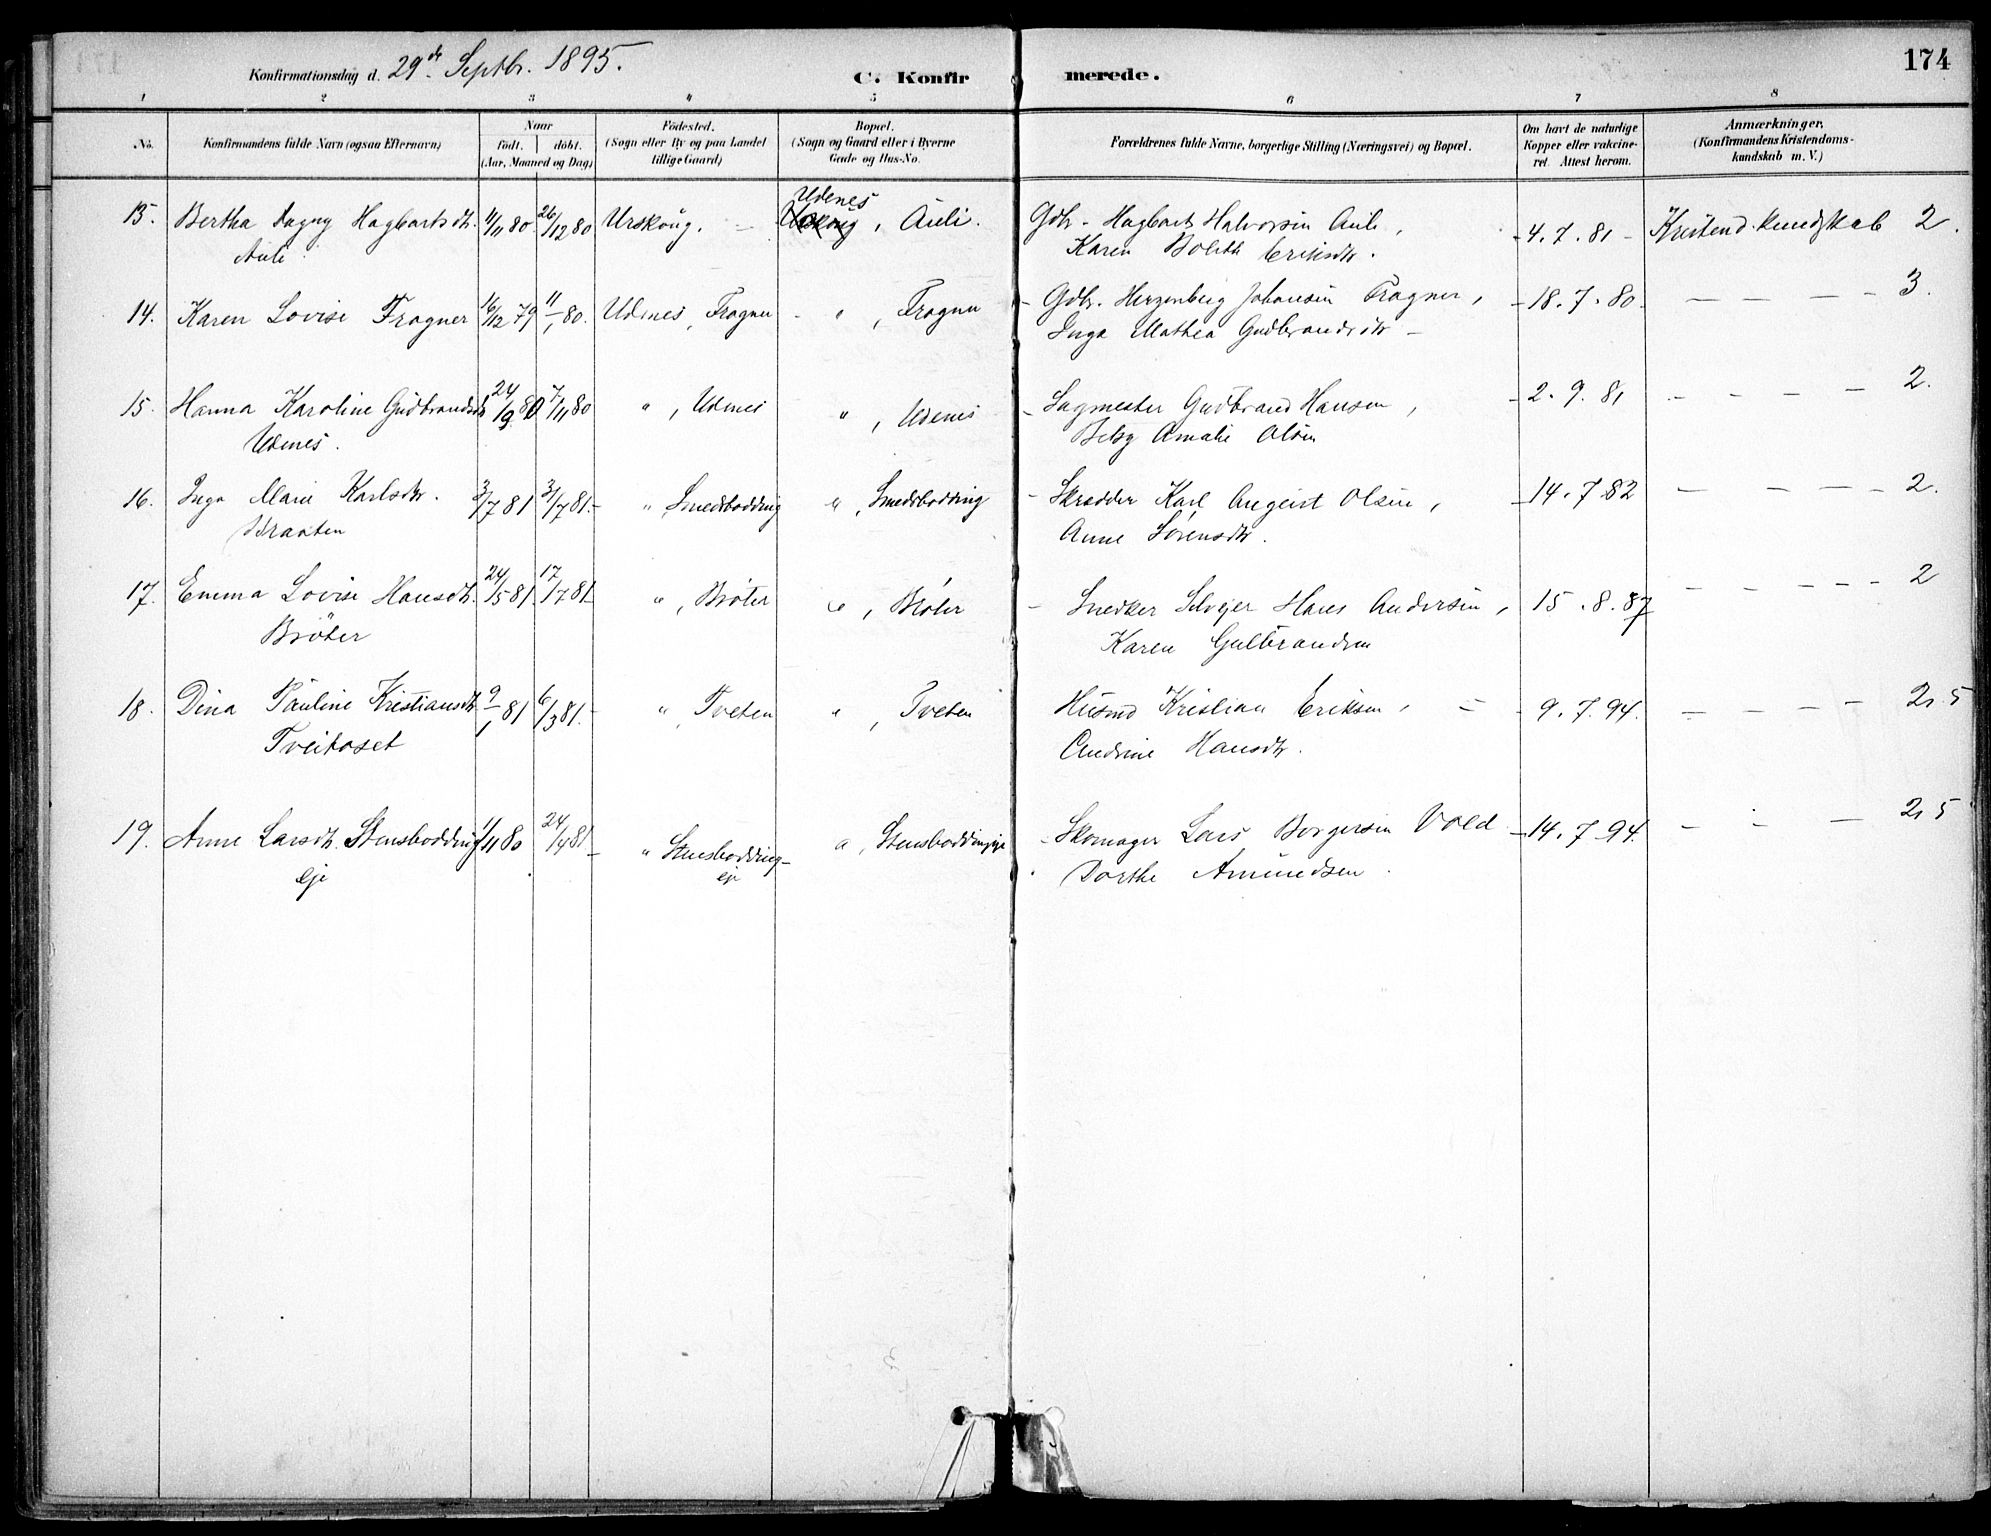 Konfirmationsdag d. 29de Septbr. 1895.
C. Konfirmerede.
174
1 2 3 4 5 6 7 8
No.
Konfirmandens fulde Navn (ogsaa Efternavn)
Naar
födt. döbt.
(Aar, Maaned og Dag)
Födested.
(Sogn eller By og paa Landet
tillige Gaard)
Bopæl.
(Sogn og Gaard eller i Byerne
Gade og Hus-No.
Forældrenes fulde Navne, borgerlige Stilling (Næringsvei) og Bopæl.
Om havt de naturlige
Kopper eller vakcine-
ret. Attest herom.
Anmærkninger,
(Konfirmandens Kristendoms-
kundskab m. V.)
Udenes
13. Bertha Dagny Hagbartsdt. 11/11 80. 26/12 80 Urskoug. – Urskoug, Auli. Gdbr. Hagbart Halvorsen Auli, 4.7.81 – Kristend. kundskab 2.
Auli Karen Bolette Eriksdtr.
14. Karen Lovise Fragner 16/12 79 11/1 80. Udenes, Fragner " , Fragner Gdbr. Herzenberg Johansen Fragner, 18.7.80. — — — — 3.
Inga Mathea Gudbrandsdtr –
15. Hanna Karoline Gudbrandsdt 24/9 80 7/11 80 " , Udenes " , Udenes Sagmester Gudbrand Hansen, 2.9.81 - - - - 2.
Udenes. Amalie Olsen
16. Inga Marie Karlsdtr. 3/7 81 31/7 81. " Smedsbodding " , Smedsbodding Skrædder Karl August Olsen, 14.7.82 — — — — 2.
Braaten Anne Sörensdtr.
17. Emma Lovise Hansdt. 24/5 81. 17/7 81 " , Bröter " , Bröter Snedker Selvejer Hans Andersen, 15.8.87 — — — — 2
Bröter Karen Gulbrandsen
18. Dina Pauline Kristiansdt 9/1 81 6/3 81. " , Tveten " , Tveten Husmd Kristian Eriksen, = 9.7.94. — — — — 2,5
Tveitaset Andrine Hansdtr.
19. Anne Larsdt. Stensbodding 11/11 80 24/4 81 " Stensbodding- " , Stensboddingeje Skomager Lars Borgersen Vold 14.7.94. — — — 2,5
eje eje Dorthe Amundsen.